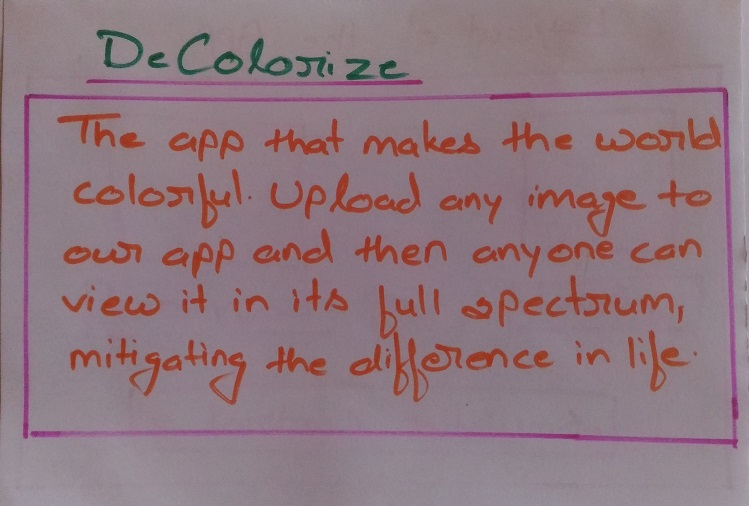 DeColorize
The app that makes the world
colorful. Upload any image to
our app and then anyone can
view it in its full spectrum,
mitigating the difference in life.